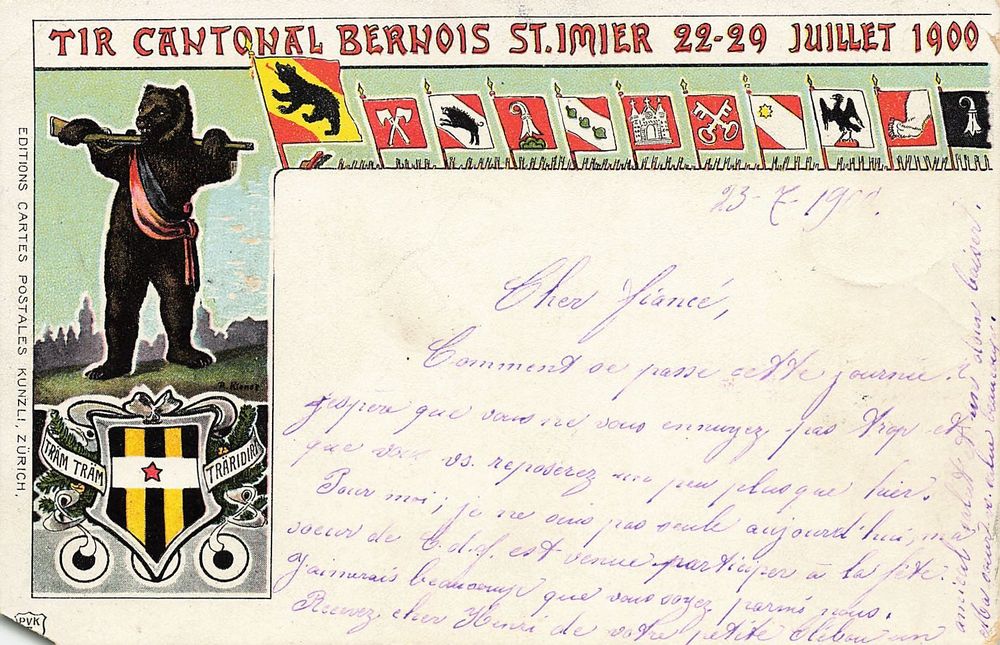 TIR CANTONAL BERNOIS ST. IMIER 22-29 JUILLET 1900
EDITIONS CARTES POSTALES KUNZLI, ZÜRICH,
TRÄM TRÄM
TRÄRIDIRI
PVK
23-7-1900.
Cher fiancé,
Comment se passe cette journée?
J'espère que vous ne vous ennuyez pas trop et
que vous vs. reposerez un peu plus que hier.
Pour moi, je ne suis pas seule aujourd'hui, ma
soeur de C.d.f. est venue participer à la fête.
J'aimerais beaucoup que vous soyez parmi nous.
Recevez cher Henri de votre petite un
amical et un doux baiser.